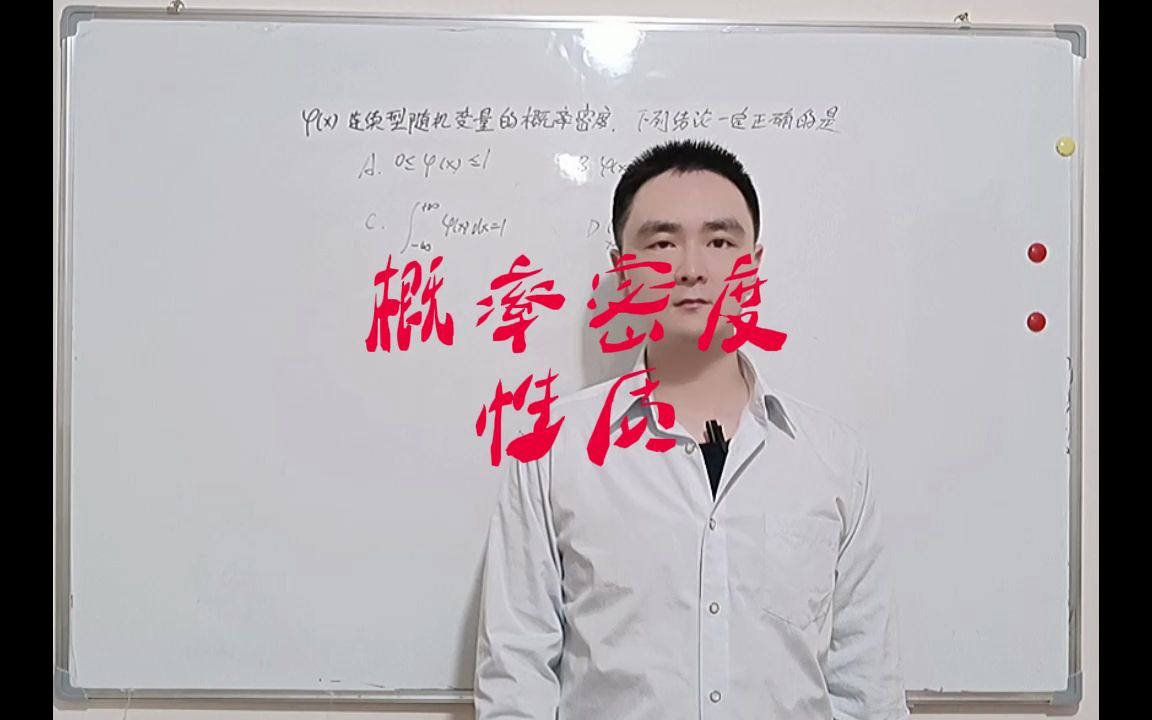 φ(x)连续型随机变量的概率密度,下列结论一定正确的是
A. 0≤φ(x)≤1
B φ(x
C. ∫_{-∞}^{+∞} φ(x)dx=1
D
概率密度
性质